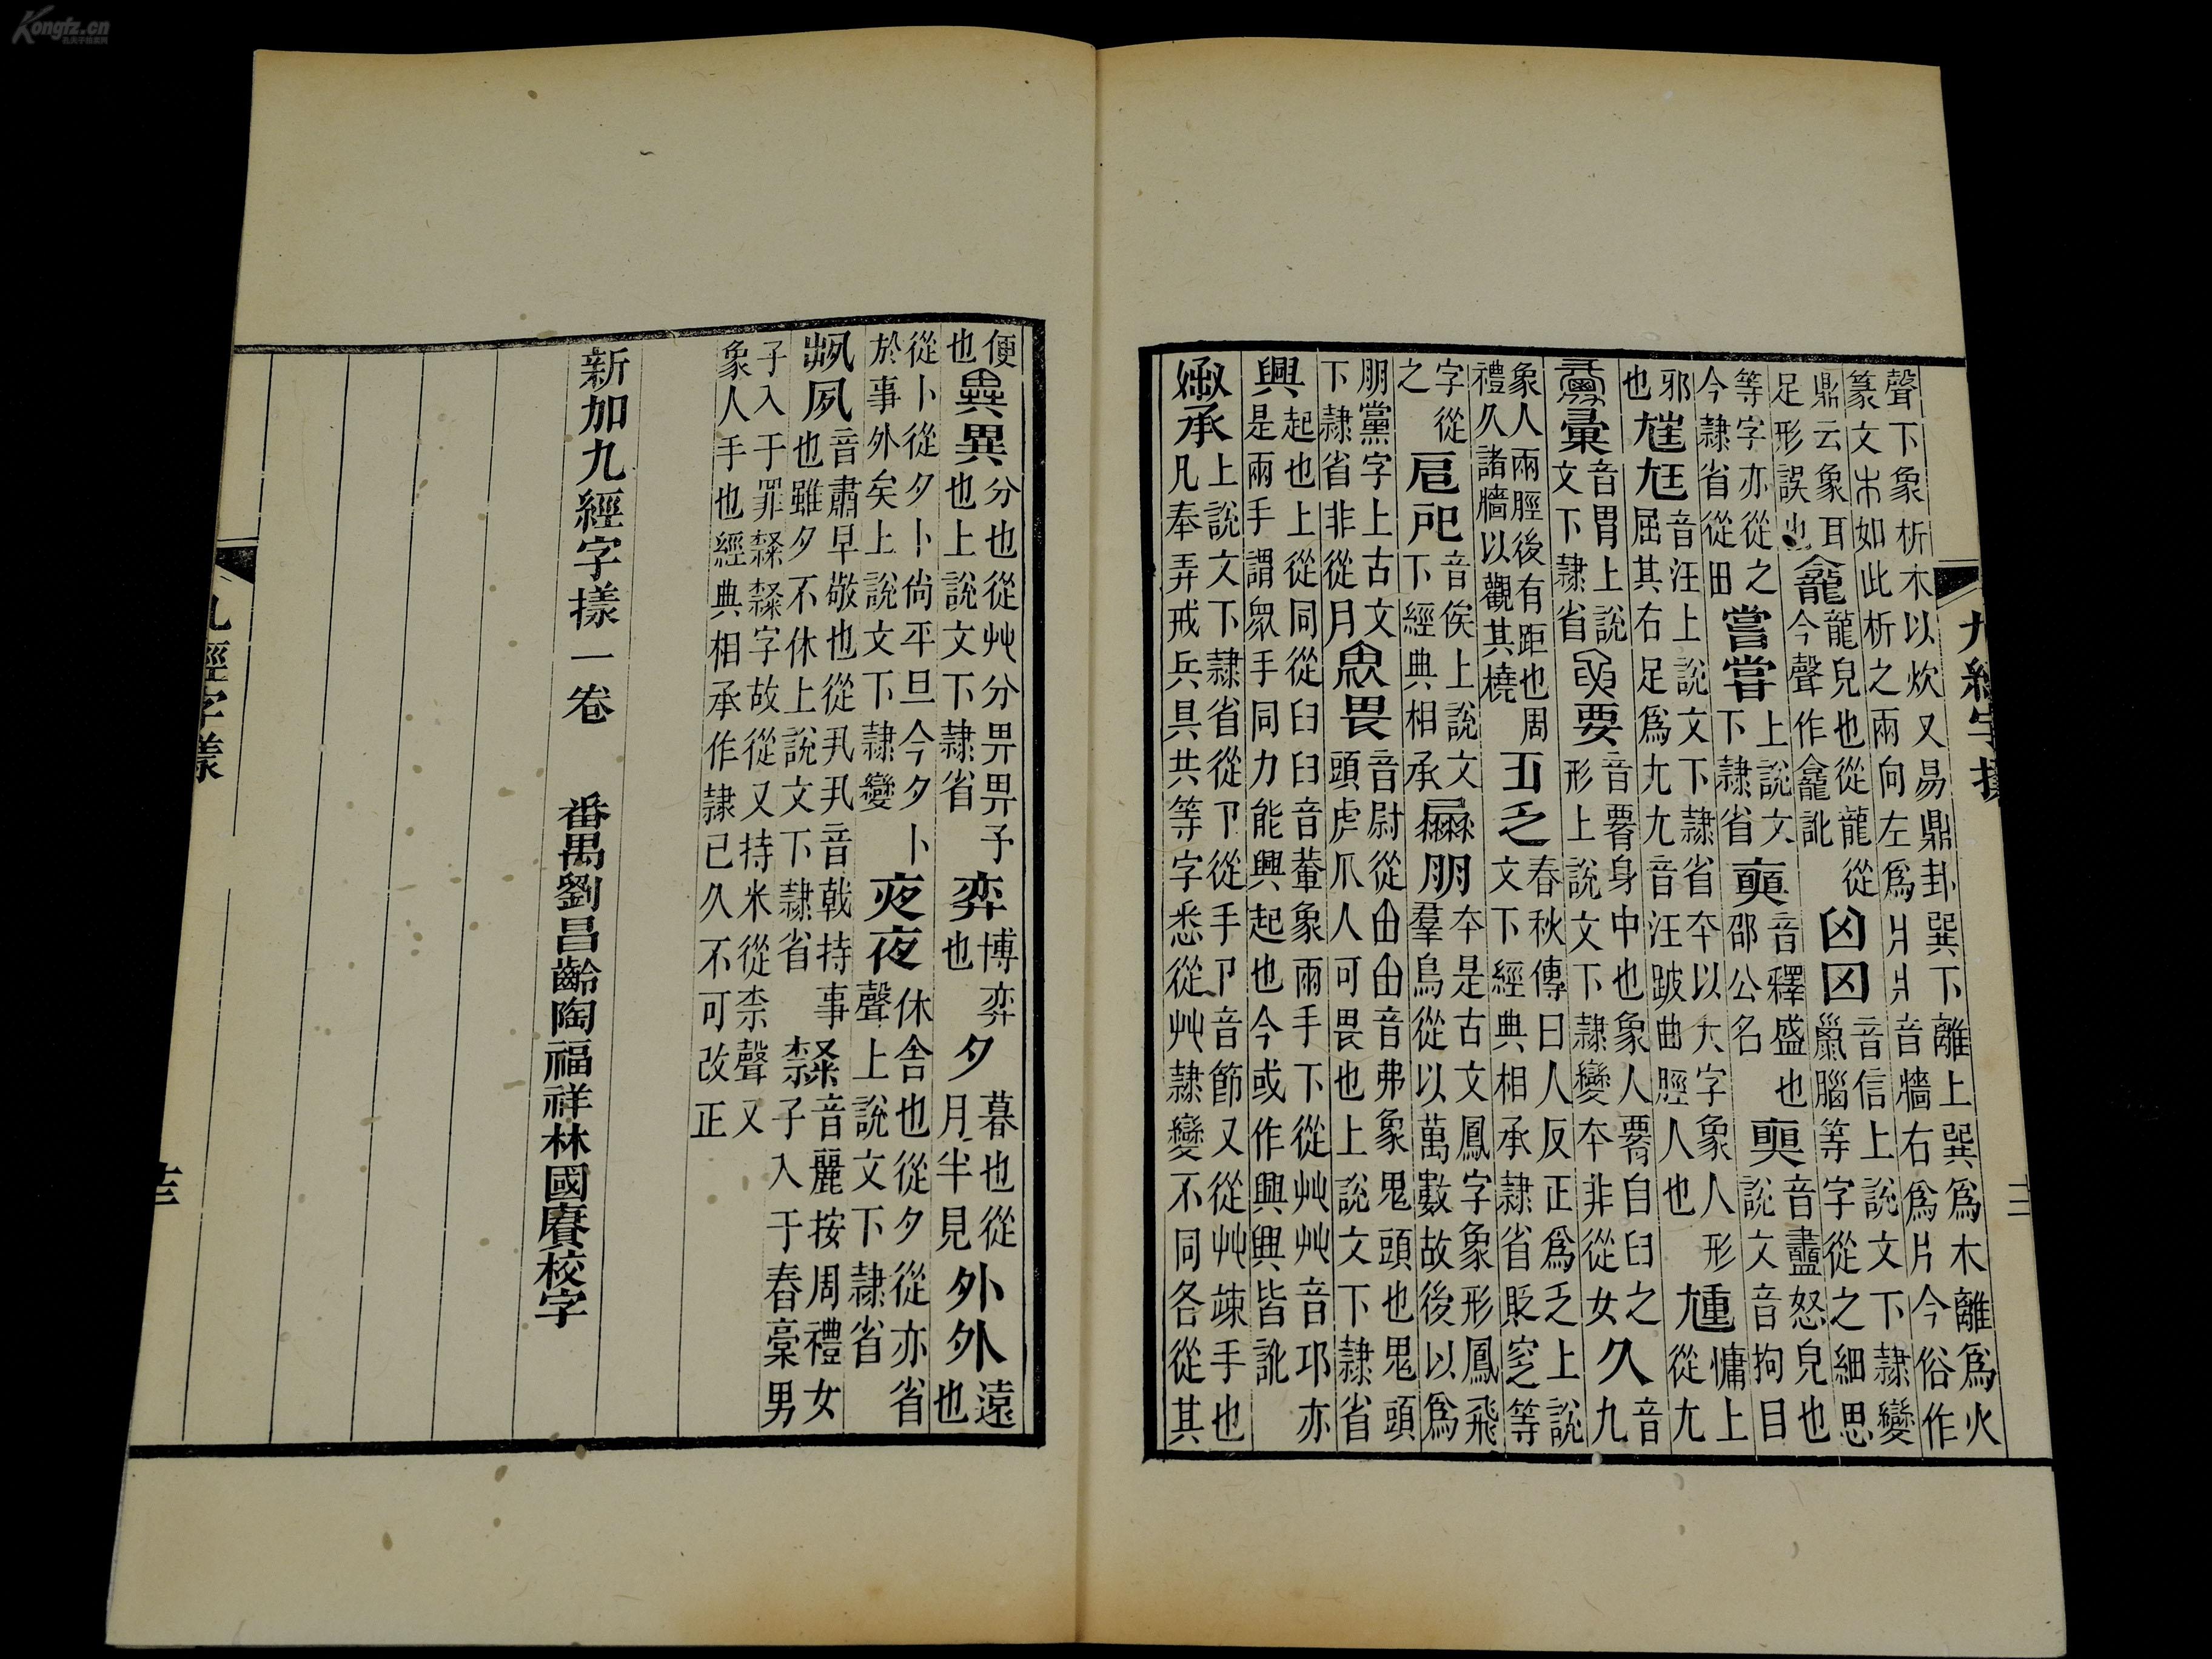 九經字樣
十二
聲下象析木以炊又易鼎卦巽下離上巽爲木離爲火
篆文如此析之兩向左爲爿爿音牆右爲片今俗作
鼎云象耳足形誤也龕龍皃也從龍從今聲作龕訛囟囟音信上說文下隸變腦等字從之細思
等字亦從之今隸省從田嘗甞上說文下隸省奭音釋盛也邵公名奭音衋怒皃也說文音拘目
邪也尪音汪上說文下隸省夲以大字象人形屈其右足爲尢尢音汪跛曲脛人也尰慵上從尢
彙音胃上說文下隸省要音䙅身中也象人䙅自臼之形上說文下隸變夲非從女久音九
象人兩脛後有距也周禮久諸牆以觀其橈乏春秋傳曰人反正爲乏上說文下經典相承隸省貶窆等
字從之音矦上說文下經典相承朋夲是古文鳳字象形鳳飛羣鳥從以萬數故後以爲
朋黨字上古文下隸省非從月畏音尉從甶甶音弗象鬼頭也鬼頭虎爪人可畏也上說文下隸省
興起也上從同從臼臼音轝象兩手下從艸艸音邛亦是兩手謂眾手同力能興起也今或作興興皆訛
承上說文下隸省從卪從手卪音節又從艸竦手也凡奉弄戒兵具共等字悉從艸隸變不同各從其
便也異分也從艸分畀畀予也上說文下隸省弈博弈也夕暮也從月半見外外遠也
從卜從夕卜尚平旦今夕卜於事外矣上說文下隸變夜夜休舍也從夕從亦省聲上說文下隸省
夙音肅早敬也從丮丮音戟持事也雖夕不休上說文下隸省𥻦音麗按周禮女子入于舂槀男
子入于罪𥻦𥻦字故從又持米從柰聲又象人手也經典相承作隸已久不可改正
新加九經字樣一卷 番禺劉昌齡陶福祥林國賡校字
九經字樣
十三
Kongfz.cn